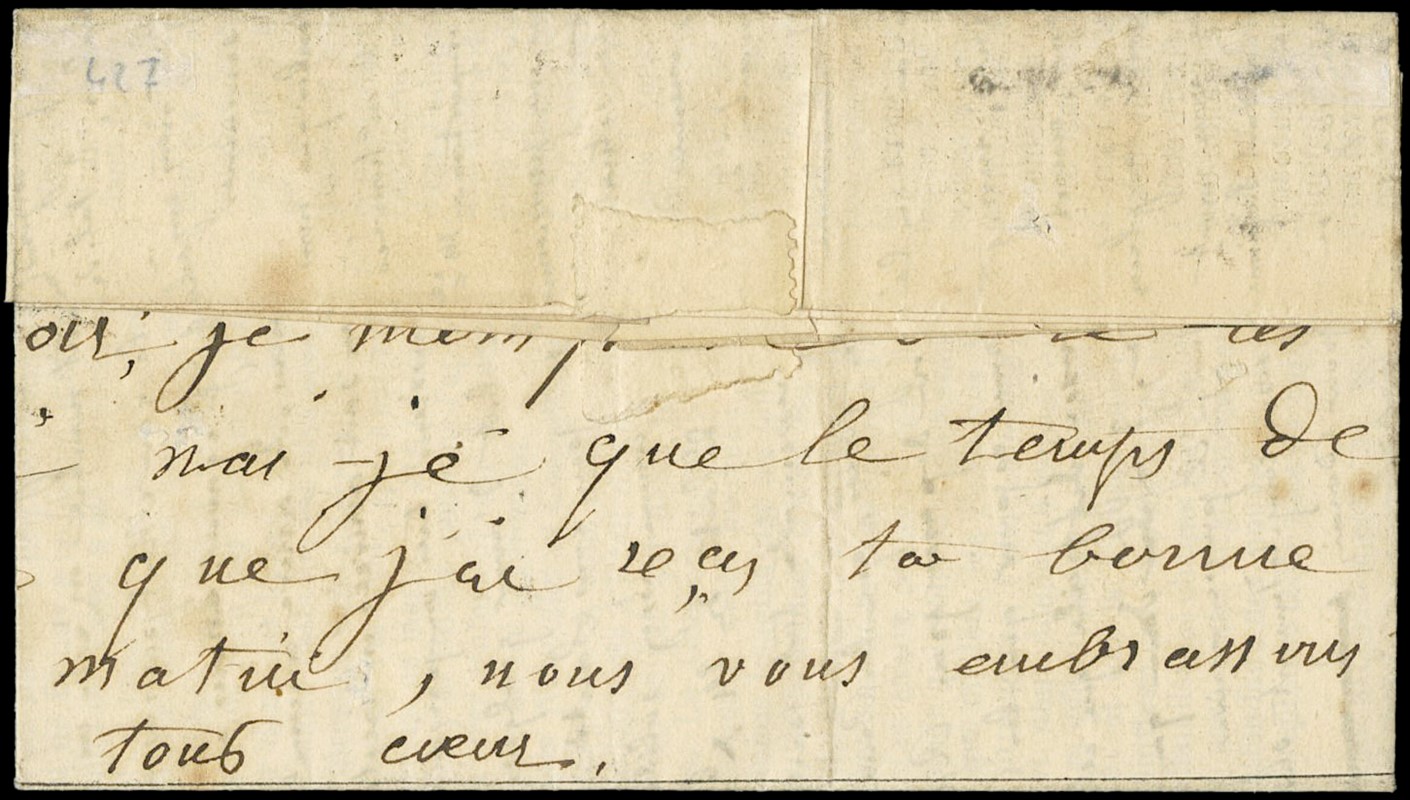 427
je
nai je que le temps de
que j'ai reçu ta bonne
matin, nous vous embrassons
tous cœur.